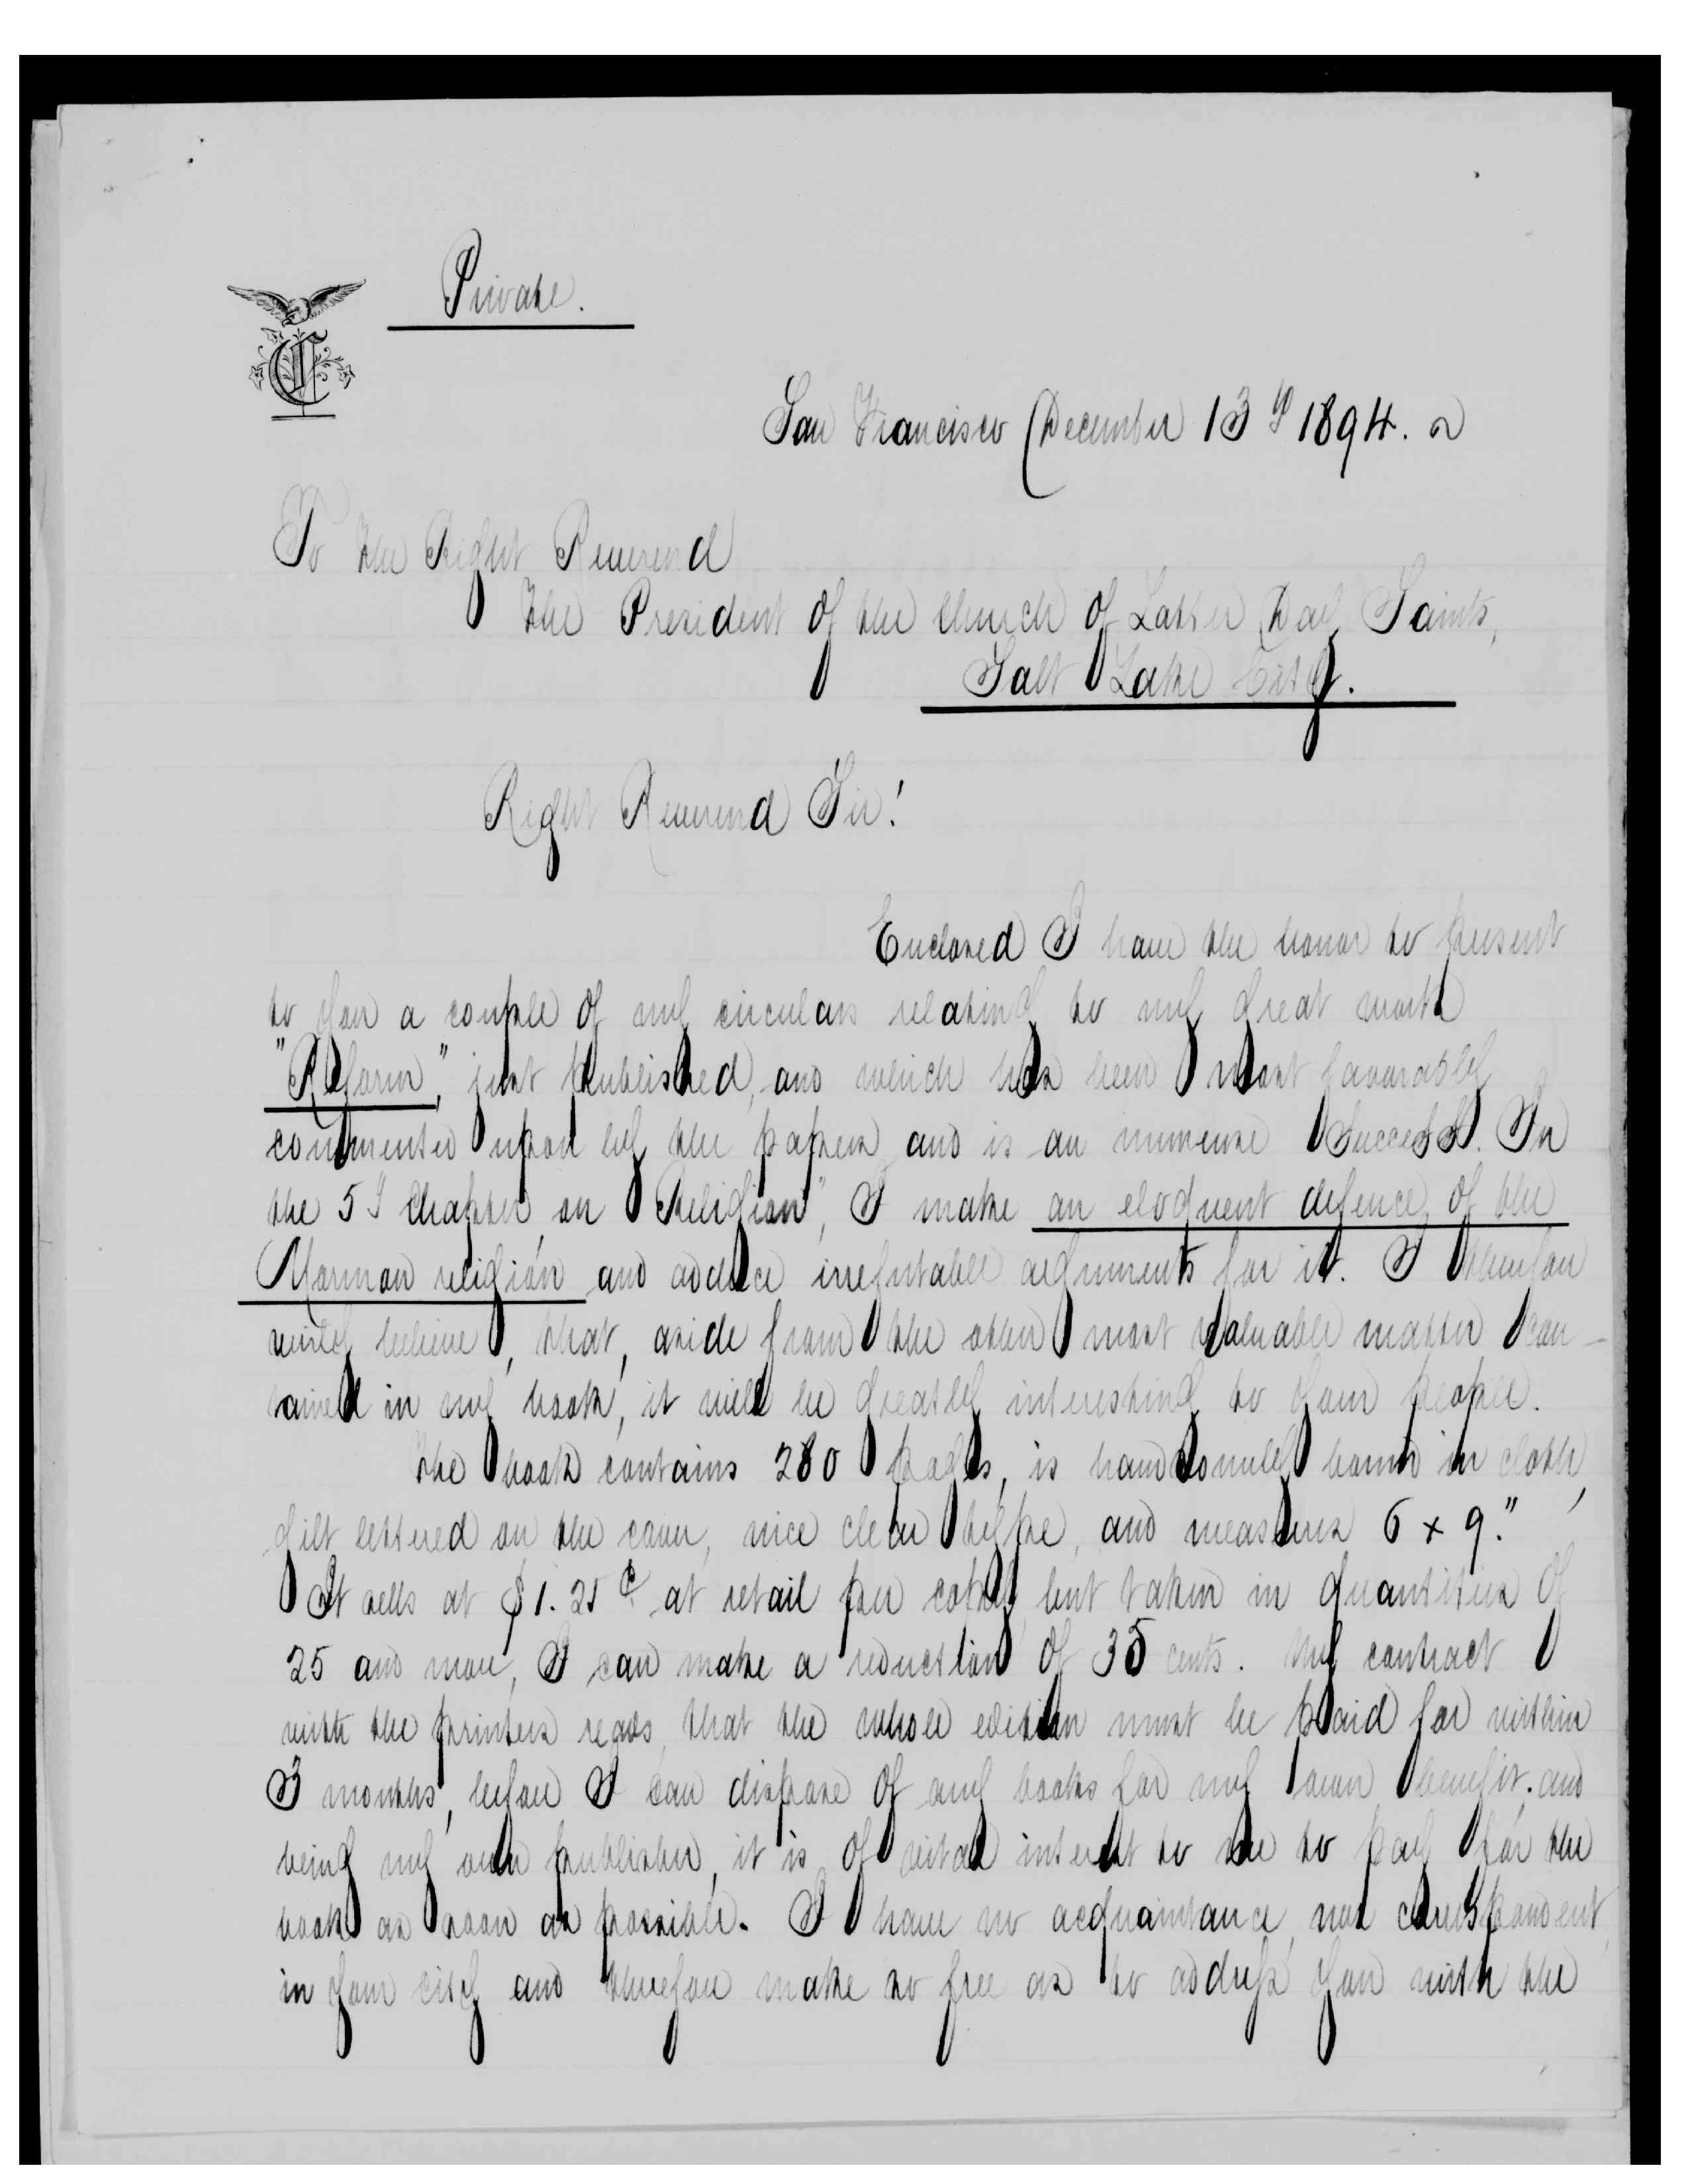 Private.
San Francisco December 13th 1894.
To the Right Reverend
The President of the Church of Latter Day Saints,
Salt Lake City.
Right Reverend Sir!
Enclosed I have the honor to present
to you a couple of my circulars relating to my great work
"Reform," just published, and which has been most favorably
commented upon by the papers and is an immense success. In
the 5th Chapter, on "Religion", I make an eloquent defence of the
Mormon religion and adduce irrefutable arguments for it. I therefore
verily believe, that, aside from the other most valuable matter con-
tained in my book, it will be greatly interesting to your people.
The book contains 280 pages, is handsomely bound in cloth,
gilt lettered on the cover, nice clear type, and measures 6 x 9."
It sells at $1.25c at retail per copy but taken in quantities of
25 and more, I can make a reduction of 35 cents. My contract
with the printers reads, that the whole edition must be paid for within
3 months, before I can dispose of any books for my own benefit, and
being my own publisher, it is of vital interest to me to pay for the
book as soon as possible. I have no acquaintance, nor correspondent,
in your city and therefore make so free as to address you with the